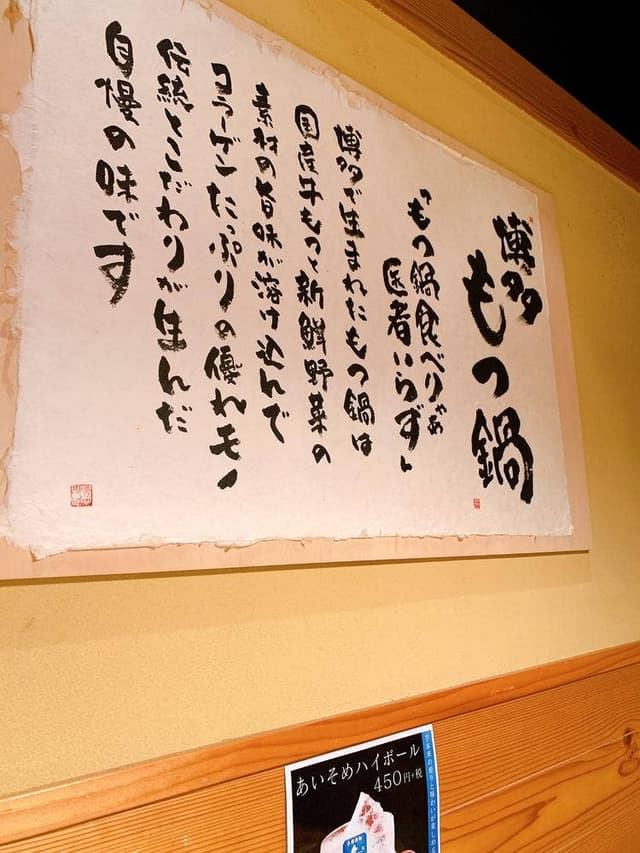 博多
もつ鍋
「もつ鍋食べりゃあ
医者いらず」
博多が生まれたもつ鍋は
国産牛もつと新鮮野菜の
素材の旨味が溶け込んで
コラーゲンたっぷりの優れモノ
伝統とこだわりが生んだ
自慢の味です
あいそめハイボール
450円+税